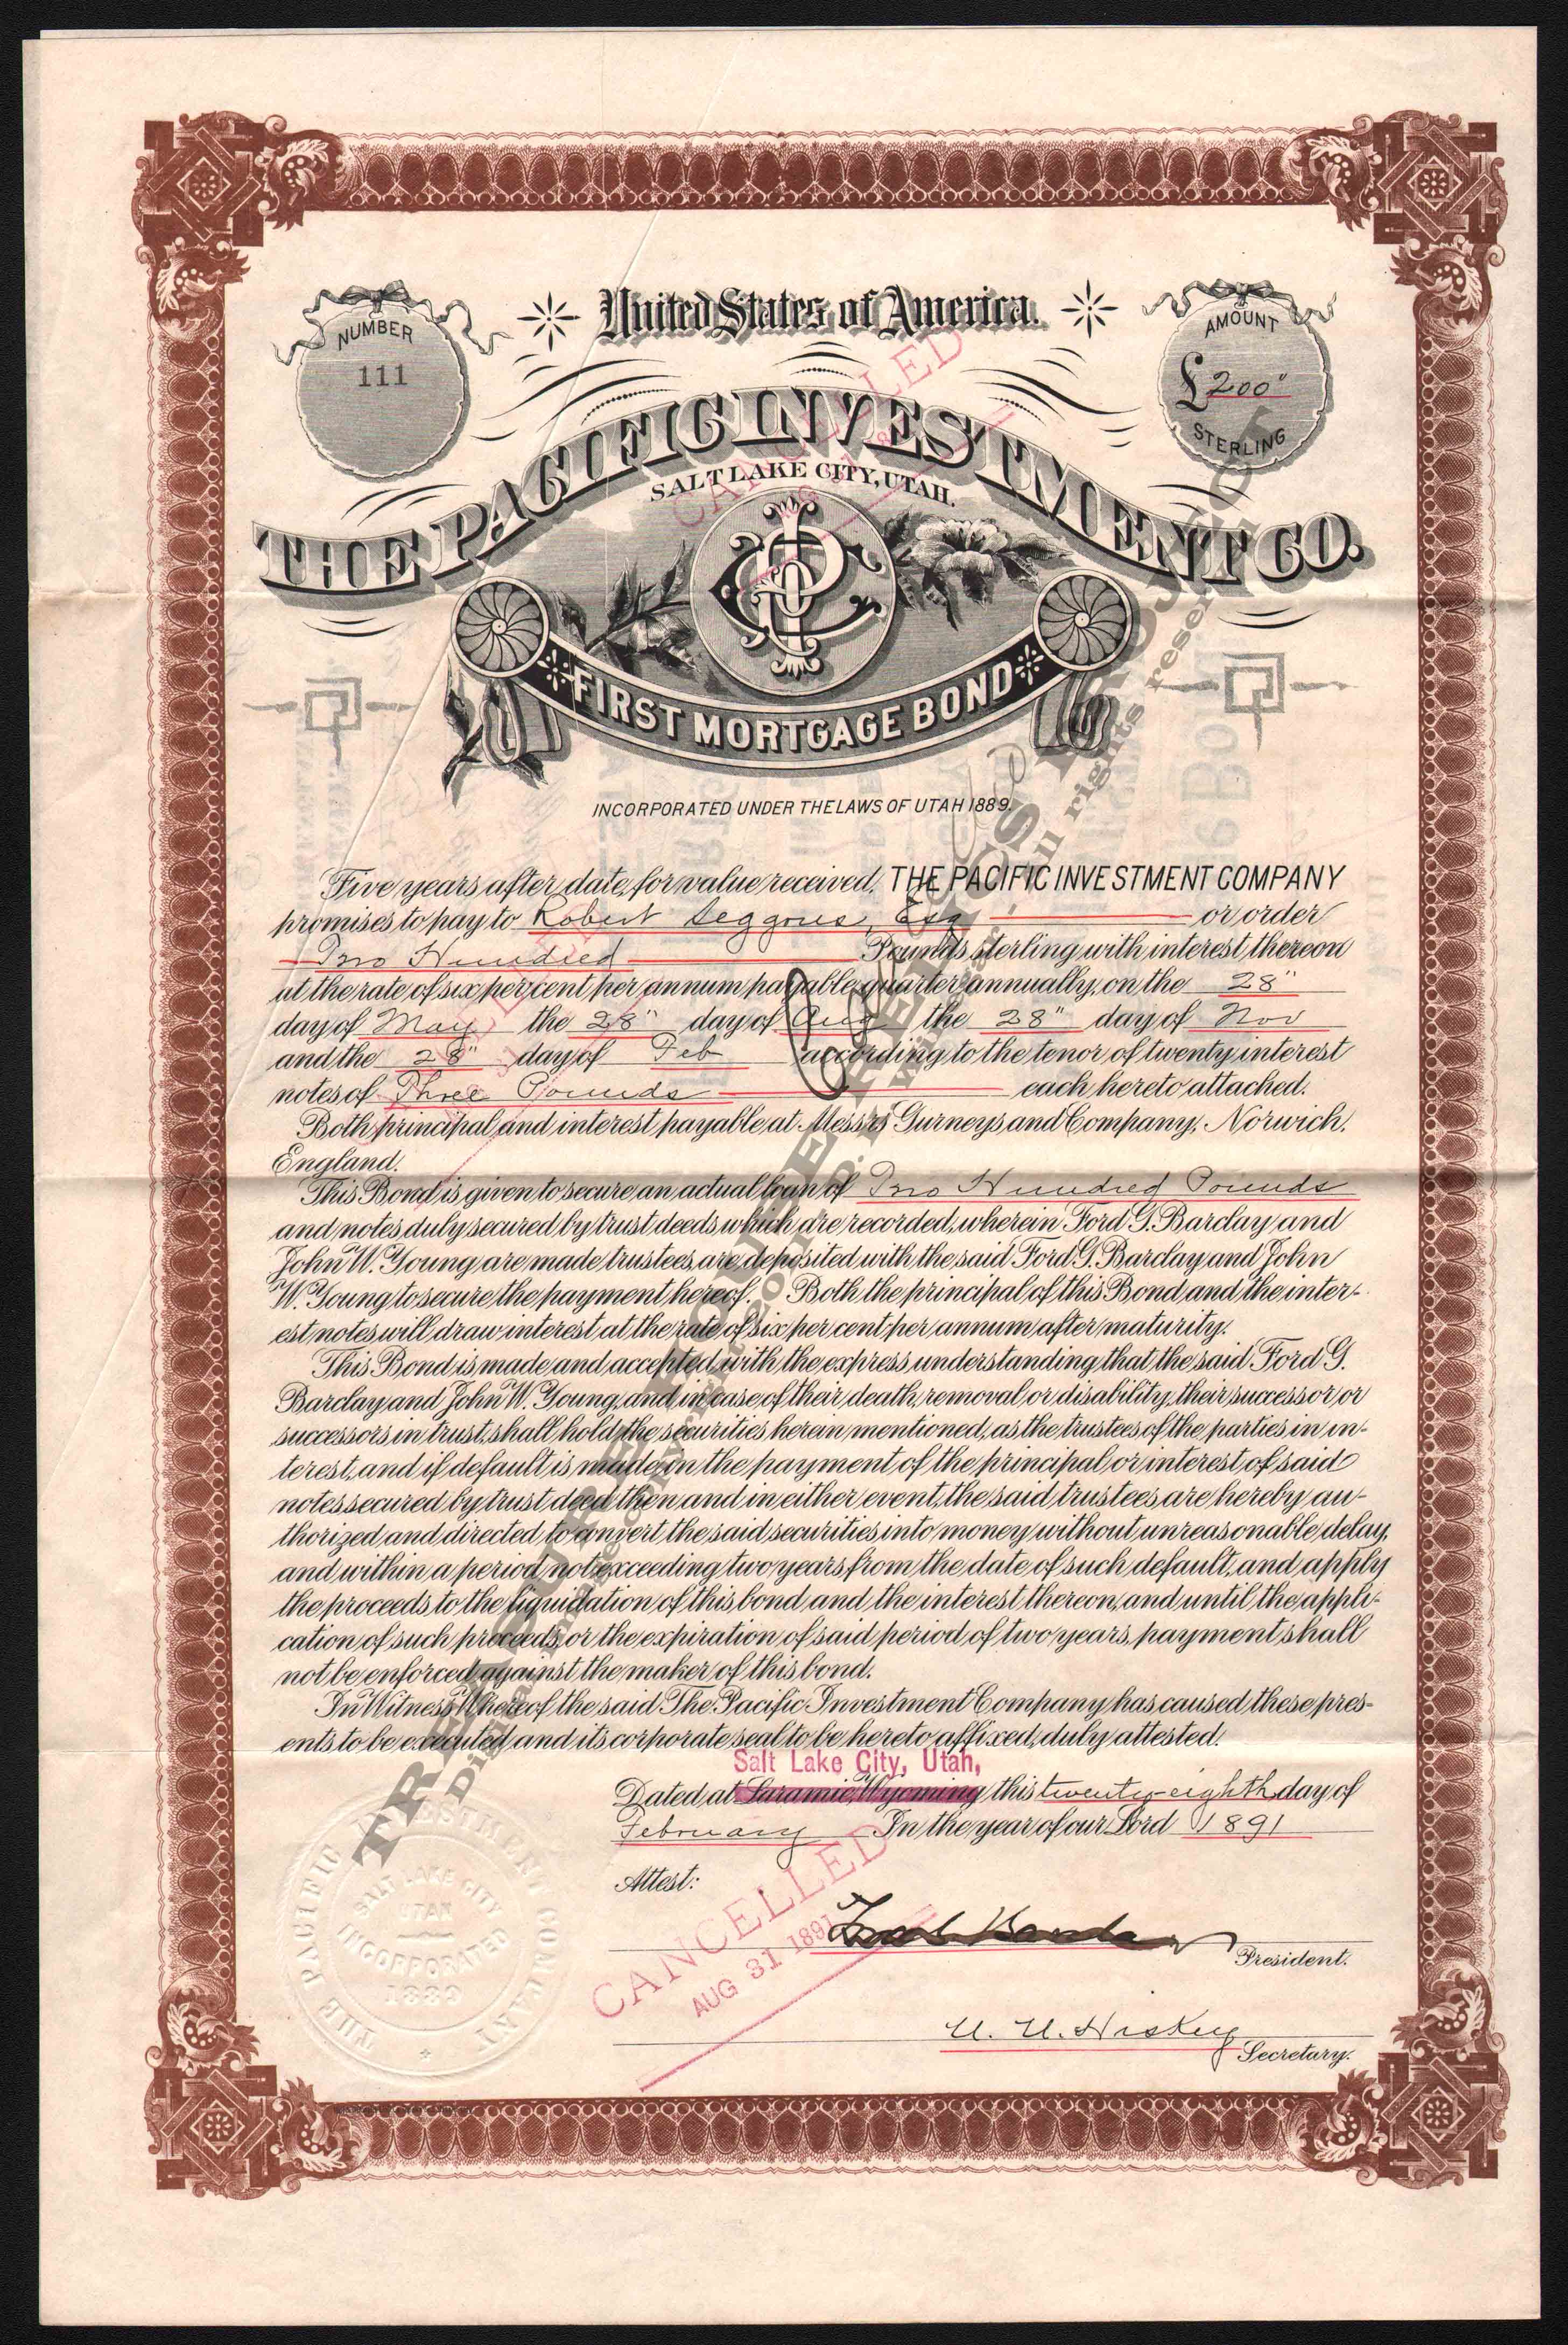 United States of America.
NUMBER
111
AMOUNT
£200"
STERLING
THE PACIFIC INVESTMENT CO.
SALT LAKE CITY, UTAH.
FIRST MORTGAGE BOND
INCORPORATED UNDER THE LAWS OF UTAH 1889.
Five years after date, for value received, THE PACIFIC INVESTMENT COMPANY
promises to pay to Robert Seggons, Esq or order
Two Hundred Pounds sterling with interest thereon
at the rate of six per cent per annum payable quarter annually, on the 28"
day of May the 28" day of Aug the 28" day of Nov
and the 28" day of Feb according to the tenor of twenty interest
notes of Three Pounds each hereto attached.
Both principal and interest payable at Messrs Gurneys and Company, Norwich,
England.
This Bond is given to secure an actual loan of Two Hundred Pounds
and notes duly secured by trust deeds which are recorded, wherein Ford G. Barclay and
John W. Young are made trustees, are deposited with the said Ford G. Barclay and John
W. Young to secure the payment hereof. Both the principal of this Bond and the inter-
est notes will draw interest at the rate of six per cent per annum after maturity.
This Bond is made and accepted with the express understanding that the said Ford G.
Barclay and John W. Young, and in case of their death, removal or disability, their successor or
successors in trust, shall hold the securities herein mentioned, as the trustees of the parties in in-
terest, and if default is made in the payment of the principal or interest of said
notes secured by trust deed then and in either event, the said trustees are hereby au-
thorized and directed to convert the said securities into money without unreasonable delay,
and within a period not exceeding two years from the date of such default, and apply
the proceeds to the liquidation of this bond and the interest thereon, and until the appli-
cation of such proceeds, or the expiration of said period of two years, payment shall
not be enforced against the maker of this bond.
In Witness Whereof the said The Pacific Investment Company has caused these pres-
ents to be executed and its corporate seal to be hereto affixed, duly attested.
Salt Lake City, Utah,
Dated at Laramie, Wyoming this twenty-eighth day of
February In the year of our Lord 1891
Attest:
President.
Secretary.
CANCELLED
AUG 31 1891
CANCELLED
THE PACIFIC INVESTMENT COMPANY
SALT LAKE CITY
UTAH
INCORPORATED
1889